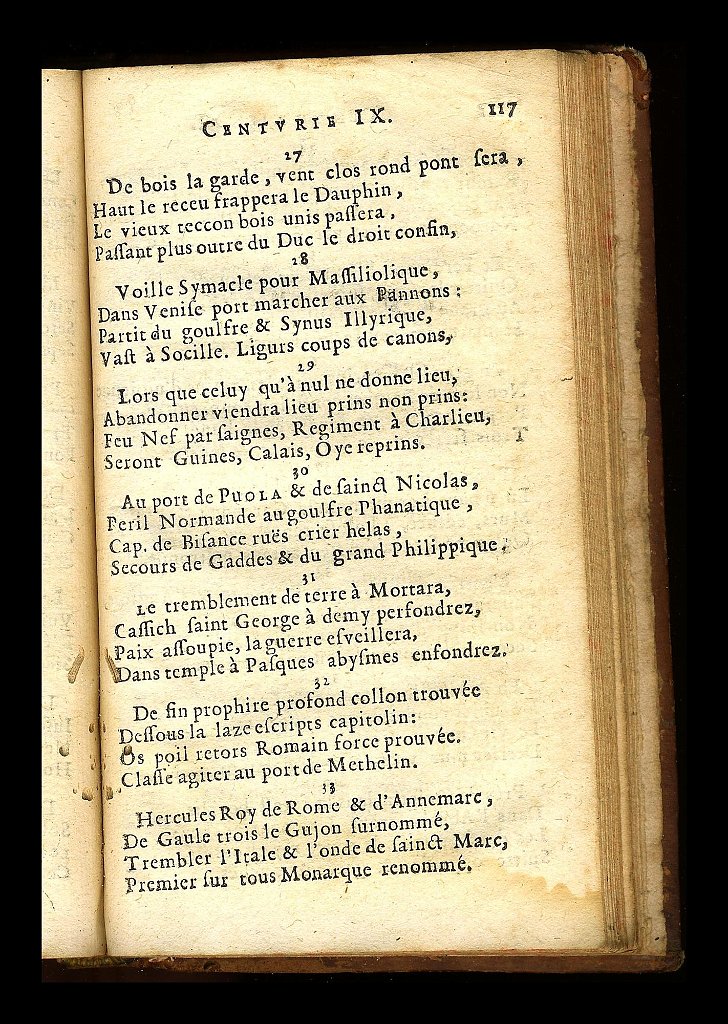 CENTVRIE IX. 117
27
De bois la garde, vent clos rond pont ſera,
Haut le receu frappera le Dauphin,
Le vieux teccon bois unis paſſera,
Paſſant plus outre du Duc le droit confin,
28
Voille Symacle pour Maſſiliolique,
Dans Veniſe port marcher aux Pannons:
Partit du goulfre & Synus Illyrique,
Vaſt à Socille. Ligurs coups de canons,
29
Lors que celuy qu'à nul ne donne lieu,
Abandonner viendra lieu prins non prins:
Feu Nef par ſaignes, Regiment à Charlieu,
Seront Guines, Calais, Oye reprins.
30
Au port de PUOLA & de ſainct Nicolas,
Peril Normande au goulfre Phanatique,
Cap. de Biſance ruës crier helas,
Secours de Gaddes & du grand Philippique.
31
Le tremblement de terre à Mortara,
Caſſich ſaint George à demy perfondrez,
Paix aſſoupie, la guerre eſveillera,
Dans temple à Paſques abyſmes enfondrez.
32
De fin prophire profond collon trouvée
Deſſous la laze eſcripts capitolin:
Os poil retors Romain force prouvée.
Claſſe agiter au port de Methelin.
33
Hercules Roy de Rome & d'Annemarc,
De Gaule trois le Gujon ſurnommé,
Trembler l'Itale & l'onde de ſainct Marc,
Premier ſur tous Monarque renommé.